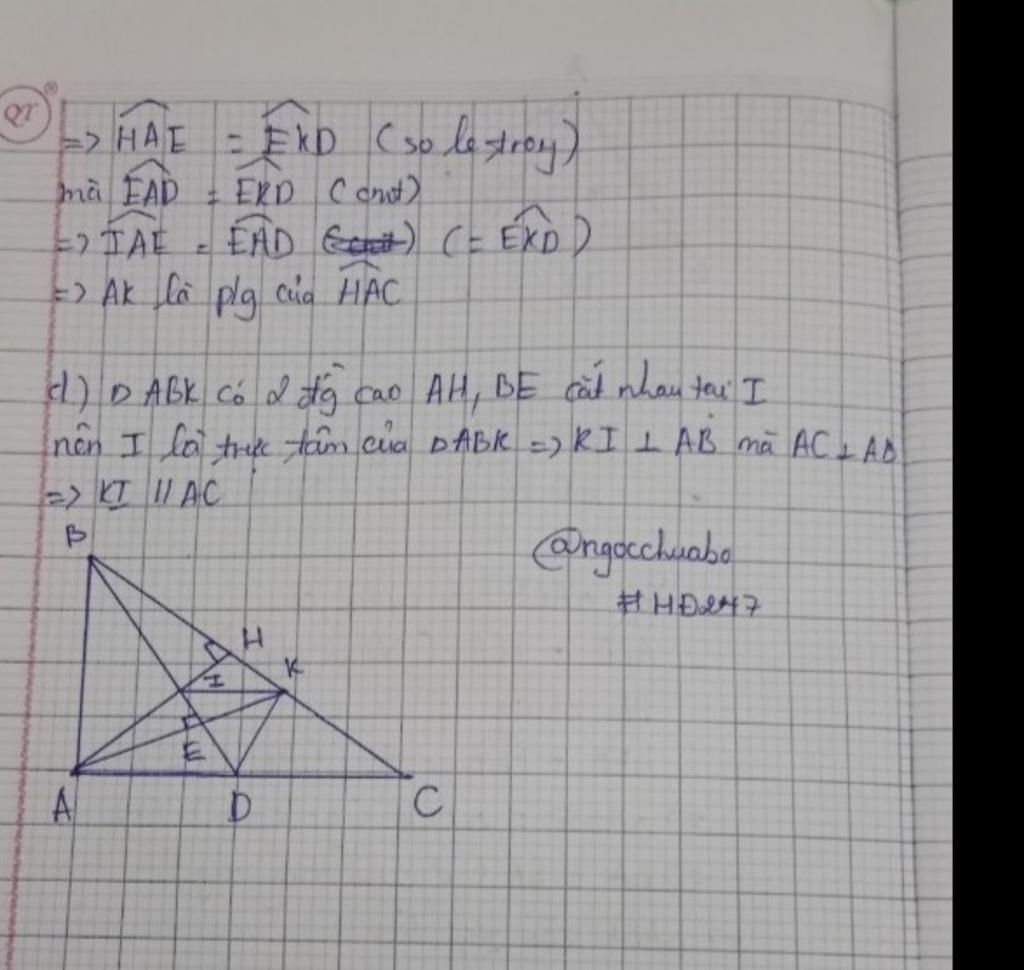 QT
=> HAE = EKD (so le trong)
mà EAD = EKD (cmt)
=> IAE = EAD (= EKD)
=> AK là p/g của HAC
d) D ABK có 2 đg cao AH, BE cắt nhau tại I
nên I là trực tâm của D ABK => KI ⊥ AB mà AC ⊥ AB
=> KI // AC
B
@ngocchuabo
#HĐ247
H
K
I
E
A D C